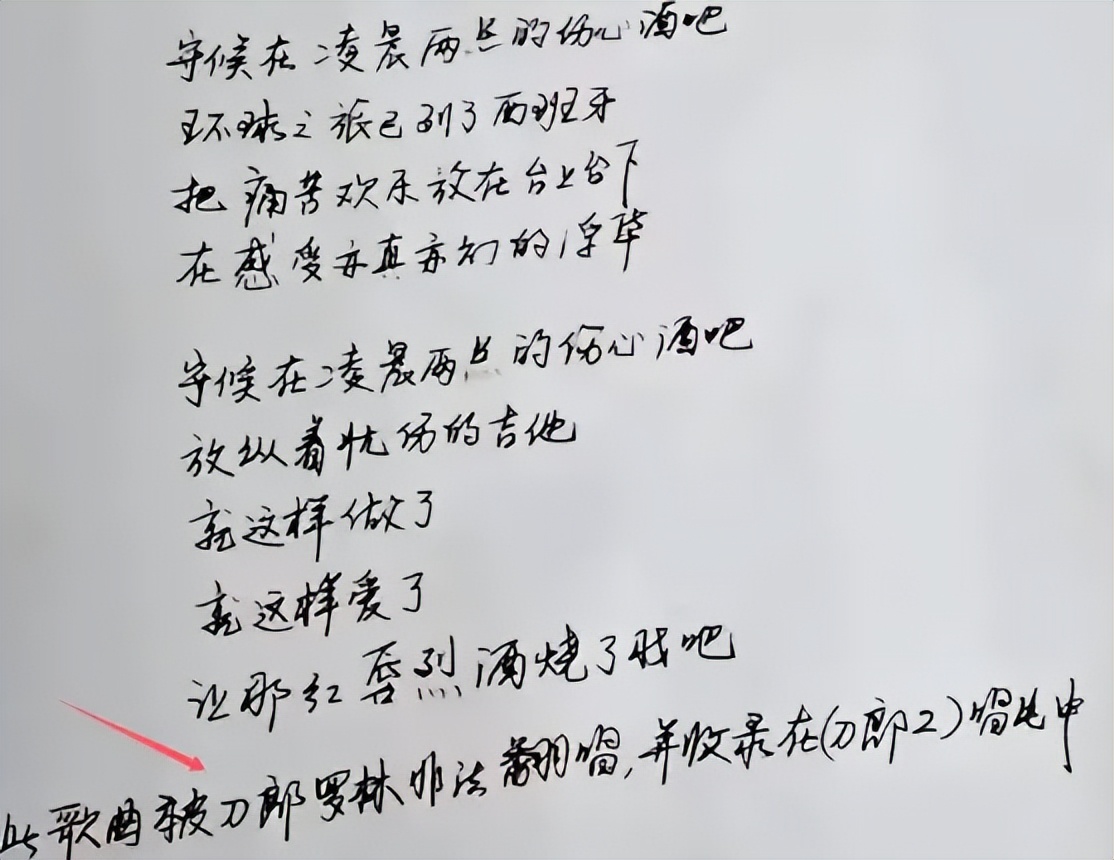 守候在凌晨两点的伤心酒吧
环球之旅已到了西班牙
把痛苦欢乐放在台上台下
在感受亦真亦幻的浮华
守候在凌晨两点的伤心酒吧
放纵着忧伤的吉他
就这样做了
就这样爱了
让那红唇烈酒烧了我吧
此歌曲被刀郎罗林非法翻唱,并收录在(刀郎2)唱片中